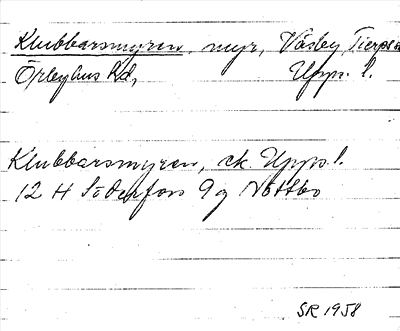 Klubbarsmyren, myr, Väsby, Tierps sn
Örbyhus hd, Upps. l.
Klubbarsmyren, ek. Upps. l.
12 H Söderfors 9g Nöttbo
SR 1958